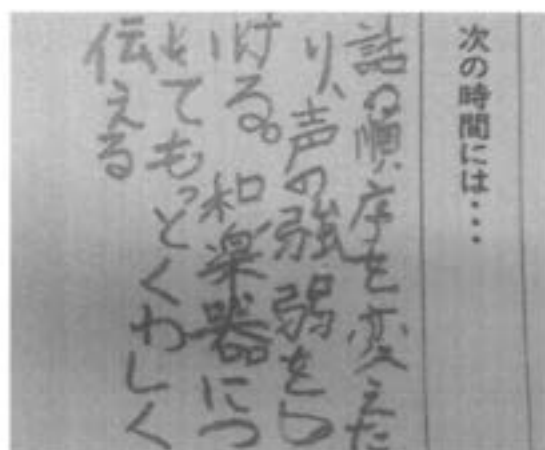 次の時間には・・・
話の順序を変えた
り、声の強弱をつ
ける。和楽器につ
いてもっとくわしく
伝える